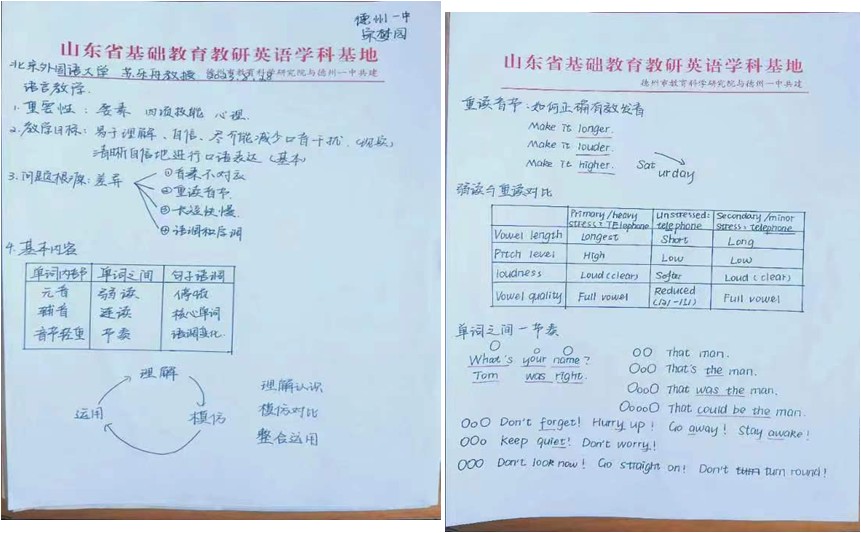 德州一中
宋梦园
山东省基础教育教研英语学科基地
德州市教育科学研究院与德州一中共建
北京外国语大学 苏乐舟教授
语言教学
1. 重要性: 要素 四项技能 心理
2. 教学目标: 易于理解、自信、尽可能减少口音干扰
清晰自信地进行口语表达 (基本)
3. 问题根源: 差异
①音素不对应
②重读音节
③长短快慢
④语调和序词
4. 基本内容
单词内部 单词之间 句子语调
元音 弱读 停顿
辅音 连读 核心单词
音节轻重 节奏 语调变化
理解
运用
模仿
理解认识
模仿对比
整合运用
山东省基础教育教研英语学科基地
德州市教育科学研究院与德州一中共建
重读音节: 如何正确有效发音
Make it longer.
Make it louder.
Make it higher.
Sat
urday
弱读与重读对比
Primary/heavy stress: TElephone Unstressed: telephone Secondary/minor stress: telephone
Vowel length Longest Short Long
Pitch level High Low Low
loudness Loud (clear) Softer Loud (clear)
Vowel quality Full vowel Reduced Full vowel
单词之间—节奏
What's your name?
Tom was right.
OO That man.
OoO That's the man.
OooO That was the man.
OoooO That could be the man.
OoO Don't forget! Hurry up! Go away! Stay awake!
OOo Keep quiet! Don't worry!
OOO Don't look now! Go straight on! Don't turn round!